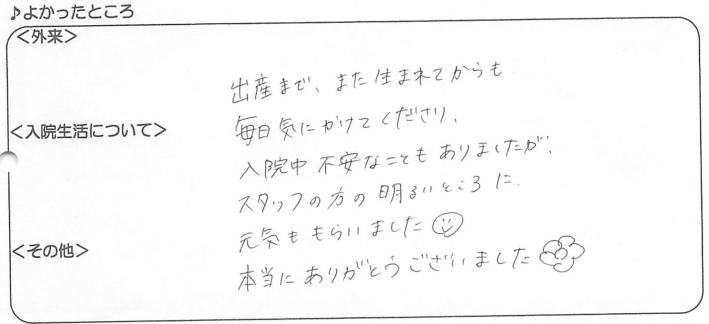 ♪よかったところ
<外来>
出産まで、また生まれてからも
毎日気にかけてくださり、
<入院生活について>
入院中不安なこともありましたが、
スタッフの方の明るいところに
元気ももらいました
<その他>
本当にありがとうございました